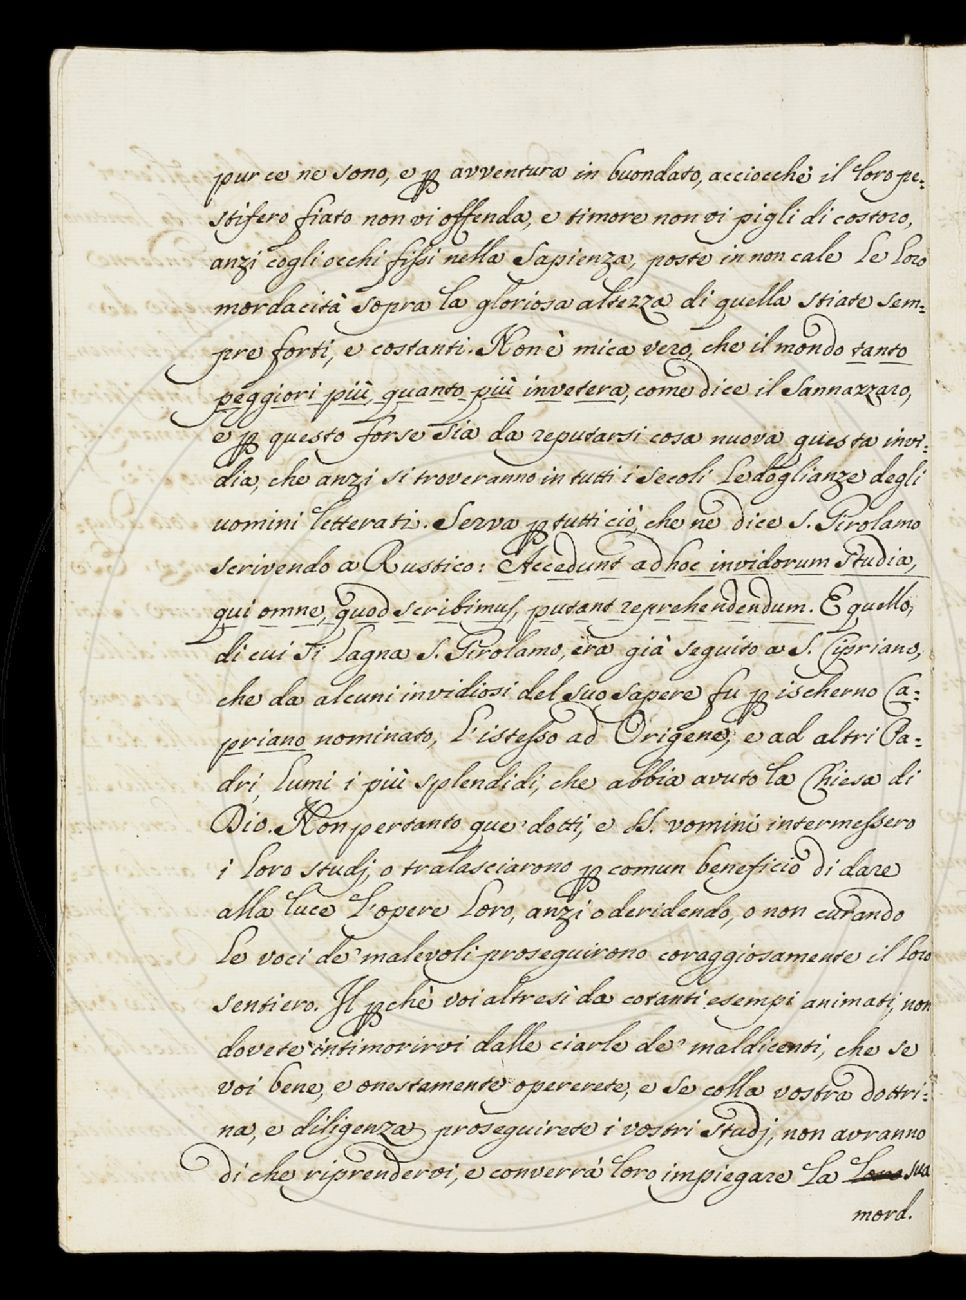 pur ce ne sono, e p avventura in buondato, acciocchè il loro pe=
stifero fiato non vi offenda, e timore non vi pigli di costoro,
anzi cogli occhi fissi nella Sapienza, poste in non cale Le Loro
mordacità sopra la gloriosa altezza di quella stiate sem=
pre forti, e costanti. Non è mica vero, che il mondo tanto
peggiori più, quanto più invetera, come dice il Sannazzaro,
e p questo forse sia da reputarsi cosa nuova questa invi=
dia, che anzi si troveranno in tutti i Secoli Le doglianze degli
uomini letterati. Serva p tutti ciò, che ne dice S. Girolamo
scrivendo a Rustico: Accedunt ad hoc invidorum studia,
qui omne, quod scribimus, putant reprehendendum. E quello,
di cui si lagna S. Girolamo, era già seguito a S. Cipriano,
che da alcuni invidiosi del suo sapere fu p ischerno Ca=
priano nominato, L'istesso ad Origene, e ad altri Pa=
dri, Lumi i più splendidi, che abbia avuto la Chiesa di
Dio. Non pertanto que' dotti, e SS. uomini intermessero
i loro studj, o tralasciarono p comun beneficio di dare
alla luce L'opere Loro, anzi o deridendo, o non curando
Le voci de' malevoli proseguirono coraggiosamente il Loro
sentiero. Il pchè voi altresì da cotanti esempi animati, non
dovete intimorirvi dalle ciarle de' maldicenti, che se
voi bene, e onestamente opererete, e se colla vostra dottri=
na, e diligenza proseguirete i vostri studj, non avranno
di che riprendervi, e converrà loro impiegare La Loro sua
mord.